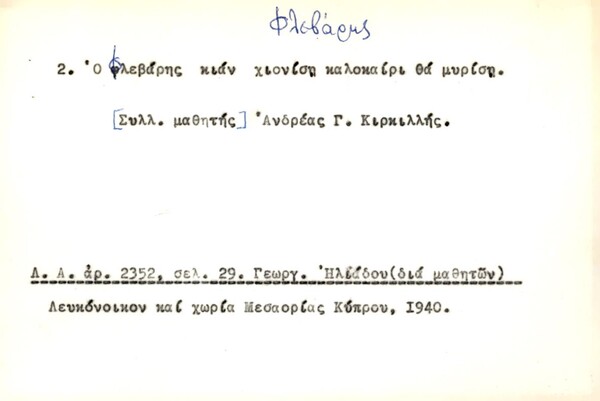 Φλεβάρης
2. Ὁ Φλεβάρης κιάν χιονίση καλοκαίρι θά μυρίση.
[Συλλ. μαθητής] Ἀνδρέας Γ. Κιρκιλλής.
Λ. Α. ἀρ. 2352, σελ. 29. Γεωργ. Ἠλιάδου(διά μαθητῶν)
Λευκόνοικον καί χωρία Μεσαορίας Κύπρου, 1940.